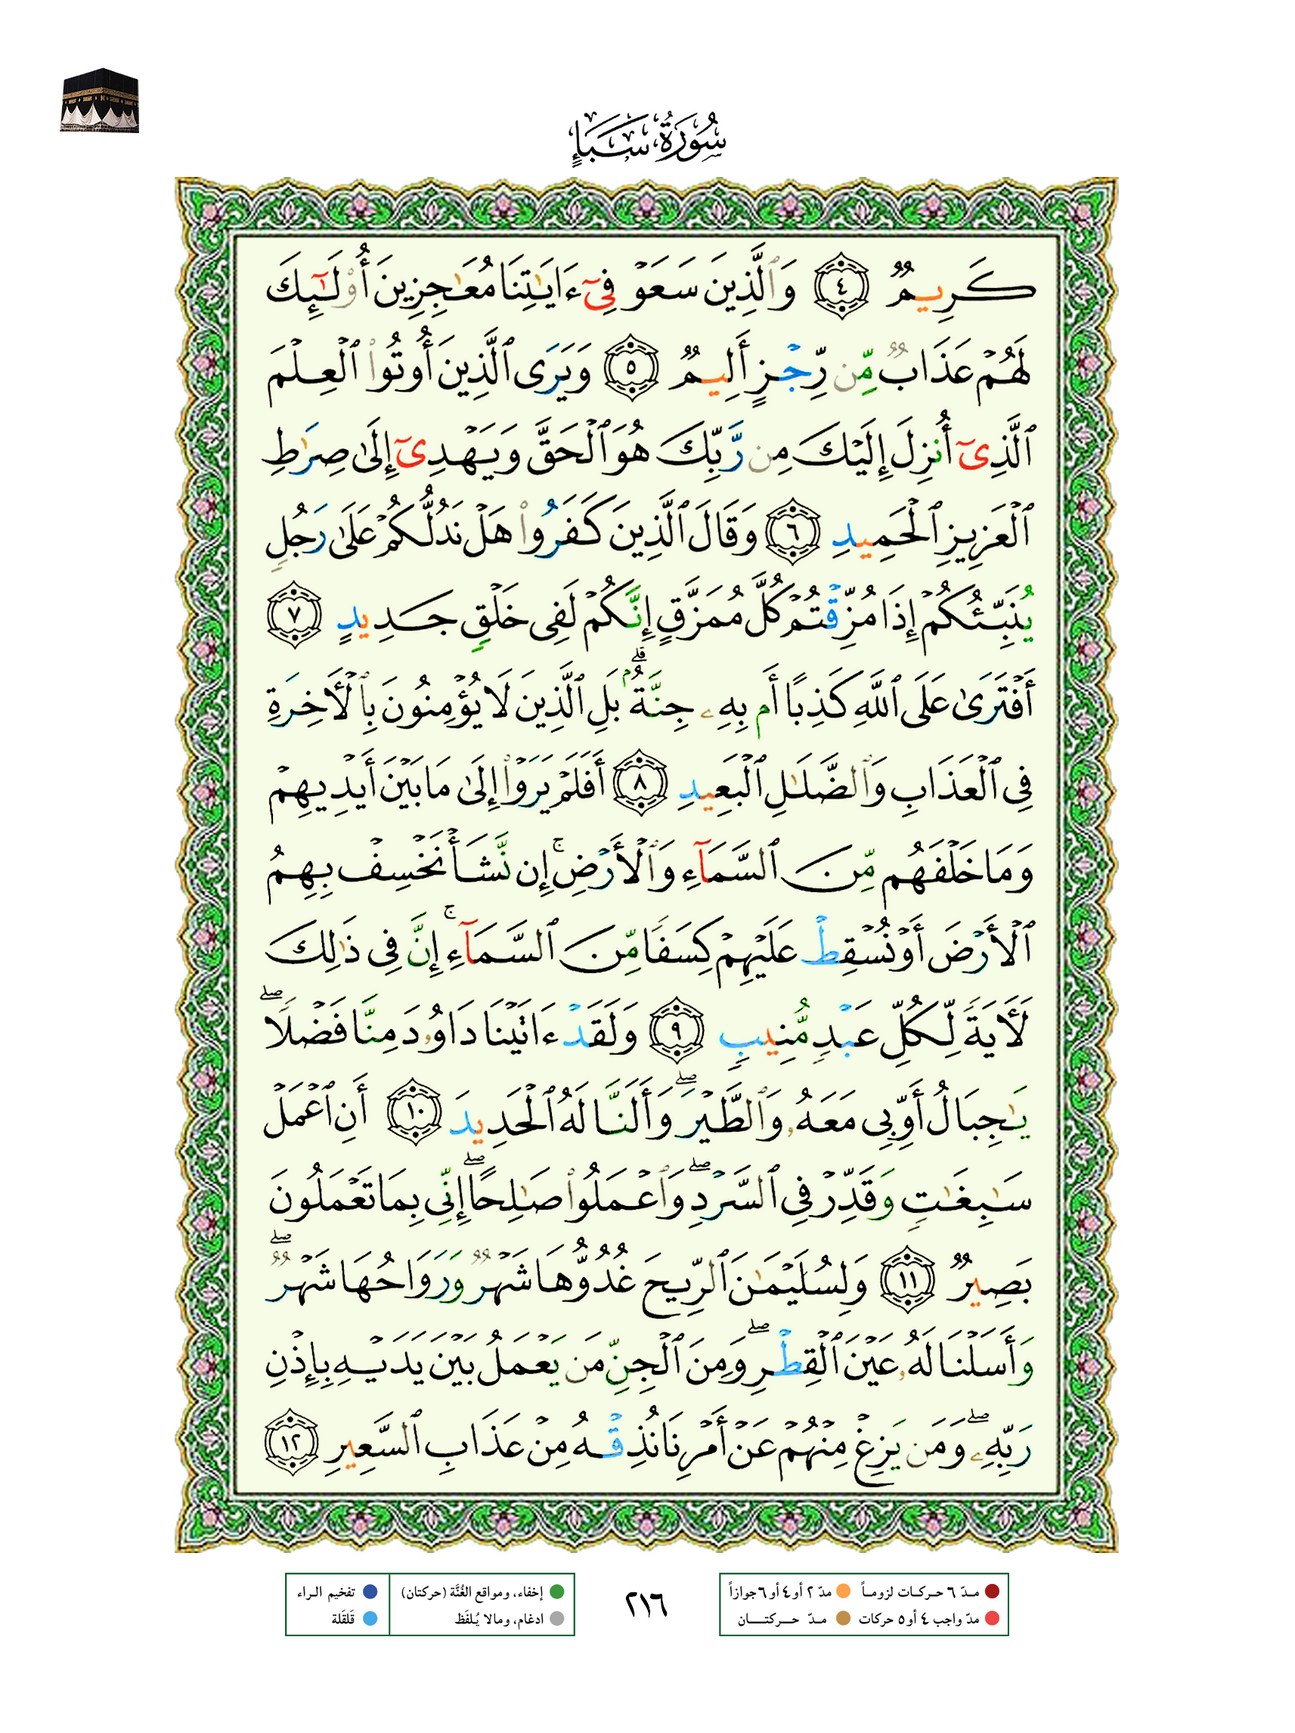 سُورَةُ سَبَإٍ
كَرِيمٌ ﴿٤﴾ وَٱلَّذِينَ سَعَوْ فِىٓ ءَايَٰتِنَا مُعَٰجِزِينَ أُوْلَٰٓئِكَ
لَهُمْ عَذَابٌ مِّن رِّجْزٍ أَلِيمٌ ﴿٥﴾ وَيَرَى ٱلَّذِينَ أُوتُوا۟ ٱلْعِلْمَ
ٱلَّذِىٓ أُنزِلَ إِلَيْكَ مِن رَّبِّكَ هُوَ ٱلْحَقَّ وَيَهْدِىٓ إِلَىٰ صِرَٰطِ
ٱلْعَزِيزِ ٱلْحَمِيدِ ﴿٦﴾ وَقَالَ ٱلَّذِينَ كَفَرُوا۟ هَلْ نَدُلُّكُمْ عَلَىٰ رَجُلٍ
يُنَبِّئُكُمْ إِذَا مُزِّقْتُمْ كُلَّ مُمَزَّقٍ إِنَّكُمْ لَفِى خَلْقٍ جَدِيدٍ ﴿٧﴾
أَفْتَرَىٰ عَلَى ٱللَّهِ كَذِبًا أَم بِهِۦ جِنَّةٌۢ ۗ بَلِ ٱلَّذِينَ لَا يُؤْمِنُونَ بِٱلْأَخِرَةِ
فِى ٱلْعَذَابِ وَٱلضَّلَٰلِ ٱلْبَعِيدِ ﴿٨﴾ أَفَلَمْ يَرَوْا۟ إِلَىٰ مَا بَيْنَ أَيْدِيهِمْ
وَمَا خَلْفَهُم مِّنَ ٱلسَّمَآءِ وَٱلْأَرْضِ ۚ إِن نَّشَأْ نَخْسِفْ بِهِمُ
ٱلْأَرْضَ أَوْ نُسْقِطْ عَلَيْهِمْ كِسَفًا مِّنَ ٱلسَّمَآءِ ۚ إِنَّ فِى ذَٰلِكَ
لَأَيَةً لِّكُلِّ عَبْدٍ مُّنِيبٍ ﴿٩﴾ وَلَقَدْ ءَاتَيْنَا دَاوُۥدَ مِنَّا فَضْلًا ۖ
يَٰجِبَالُ أَوِّبِى مَعَهُۥ وَٱلطَّيْرَ ۖ وَأَلَنَّا لَهُ ٱلْحَدِيدَ ﴿١٠﴾ أَنِ ٱعْمَلْ
سَٰبِغَٰتٍ وَقَدِّرْ فِى ٱلسَّرْدِ ۖ وَٱعْمَلُوا۟ صَٰلِحًا ۖ إِنِّى بِمَا تَعْمَلُونَ
بَصِيرٌ ﴿١١﴾ وَلِسُلَيْمَٰنَ ٱلرِّيحَ غُدُوُّهَا شَهْرٌ وَرَوَاحُهَا شَهْرٌ ۖ
وَأَسَلْنَا لَهُۥ عَيْنَ ٱلْقِطْرِ ۖ وَمِنَ ٱلْجِنِّ مَن يَعْمَلُ بَيْنَ يَدَيْهِ بِإِذْنِ
رَبِّهِۦ ۖ وَمَن يَزِغْ مِنْهُمْ عَنْ أَمْرِنَا نُذِقْهُ مِنْ عَذَابِ ٱلسَّعِيرِ ﴿١٢﴾
مـدّ ٦ حـركـات لزومـاً مدّ ٢ أو ٤ أو ٦ جوازاً
مدّ واجب ٤ أو ٥ حركات مـدّ حـــركتـــــان
٢١٦
إخفاء، ومواقع الغُنَّة (حركتان) تفخيم الـراء
ادغام، ومالا يُـلفَظ قَلقَلة